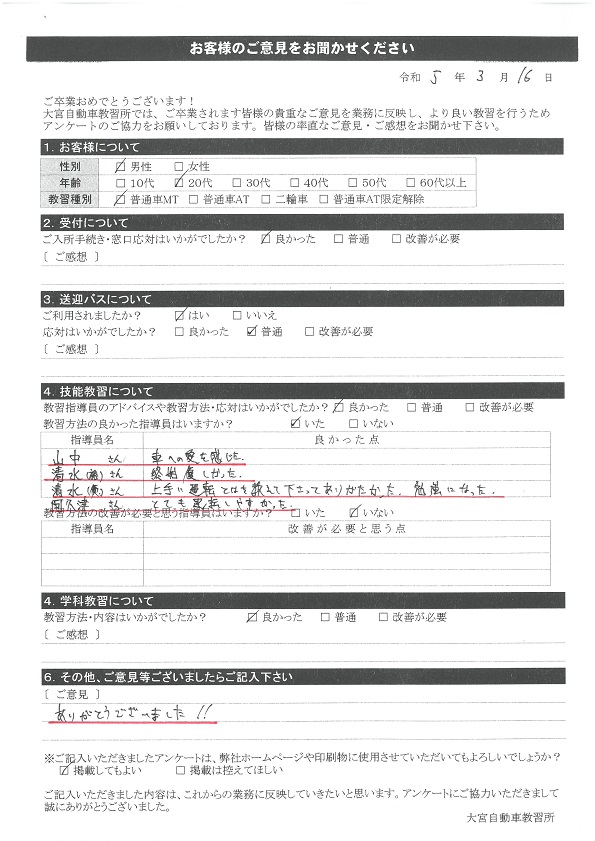 お客様のご意見をお聞かせください
令和 5 年 3 月 16 日
ご卒業おめでとうございます！
大宮自動車教習所では、ご卒業されます皆様の貴重なご意見を業務に反映し、より良い教習を行うため
アンケートのご協力をお願いしております。皆様の率直なご意見・ご感想をお聞かせ下さい。
1. お客様について
性別 ☑ 男性 □ 女性
年齢 □ 10代 ☑ 20代 □ 30代 □ 40代 □ 50代 □ 60代以上
教習種別 ☑ 普通車MT □ 普通車AT □ 二輪車 □ 普通車AT限定解除
2. 受付について
ご入所手続き・窓口応対はいかがでしたか？ ☑ 良かった □ 普通 □ 改善が必要
〔 ご感想 〕
3. 送迎バスについて
ご利用されましたか？ ☑ はい □ いいえ
応対はいかがでしたか？ □ 良かった ☑ 普通 □ 改善が必要
〔 ご感想 〕
4. 技能教習について
教習指導員のアドバイスや教習方法・応対はいかがでしたか？ ☑ 良かった □ 普通 □ 改善が必要
教習方法の良かった指導員はいますか？ ☑ いた □ いない
指導員名 良かった点
山中 さん 車への愛を感じた.
清水 さん 終始優しかった.
清水 さん 上手に運転 を教えて下さってありがたかった. 勉強になった.
阿久津 さん とても運転しやすかった.
教習方法の改善が必要と思う指導員はいますか？ □ いた ☑ いない
指導員名 改善が必要と思う点
4. 学科教習について
教習方法・内容はいかがでしたか？ ☑ 良かった □ 普通 □ 改善が必要
〔 ご感想 〕
6. その他、ご意見等ございましたらご記入下さい
〔 ご意見 〕
ありがとうございました!!
※ご記入いただきましたアンケートは、弊社ホームページや印刷物に使用させていただいてもよろしいでしょうか？
☑ 掲載してもよい □ 掲載は控えてほしい
ご記入いただきました内容は、これからの業務に反映していきたいと思います。アンケートにご協力いただきまして
誠にありがとうございました。
大宮自動車教習所